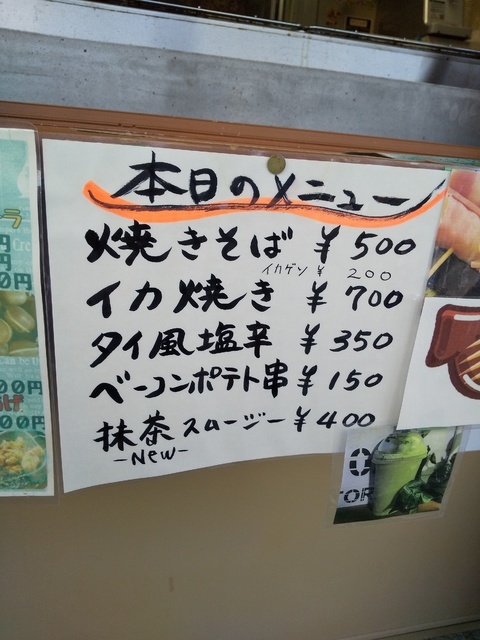 本日のメニュー
焼きそば ¥500
イカゲソ ¥ 200
イカ焼き ¥700
タイ風塩辛 ¥350
ベーコンポテト串 ¥150
抹茶スムージー ¥400
-New-
ラ
円
円
0円
00円
00円
TOR